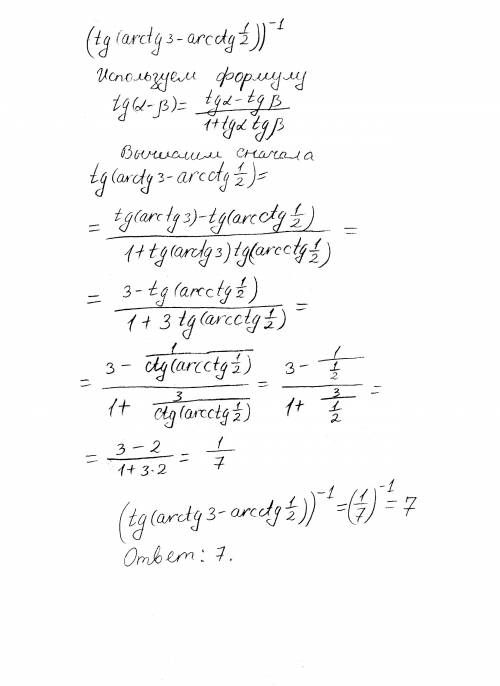 (tg(arctg 3 - arcctg 1/2))^-1
Используем формулу
tg(α-β) = (tgα - tgβ)/(1 + tgα tgβ)
Вычислим сначала
tg(arctg 3 - arcctg 1/2) =
= (tg(arctg 3) - tg(arcctg 1/2))/(1 + tg(arctg 3) tg(arcctg 1/2)) =
= (3 - tg(arcctg 1/2))/(1 + 3 tg(arcctg 1/2)) =
= (3 - 1/(ctg(arcctg 1/2)))/(1 + 3/(ctg(arcctg 1/2))) = (3 - 1/(1/2))/(1 + 3/(1/2)) =
= (3 - 2)/(1 + 3·2) = 1/7
(tg(arctg 3 - arcctg 1/2))^-1 = (1/7)^-1 = 7
Ответ: 7.